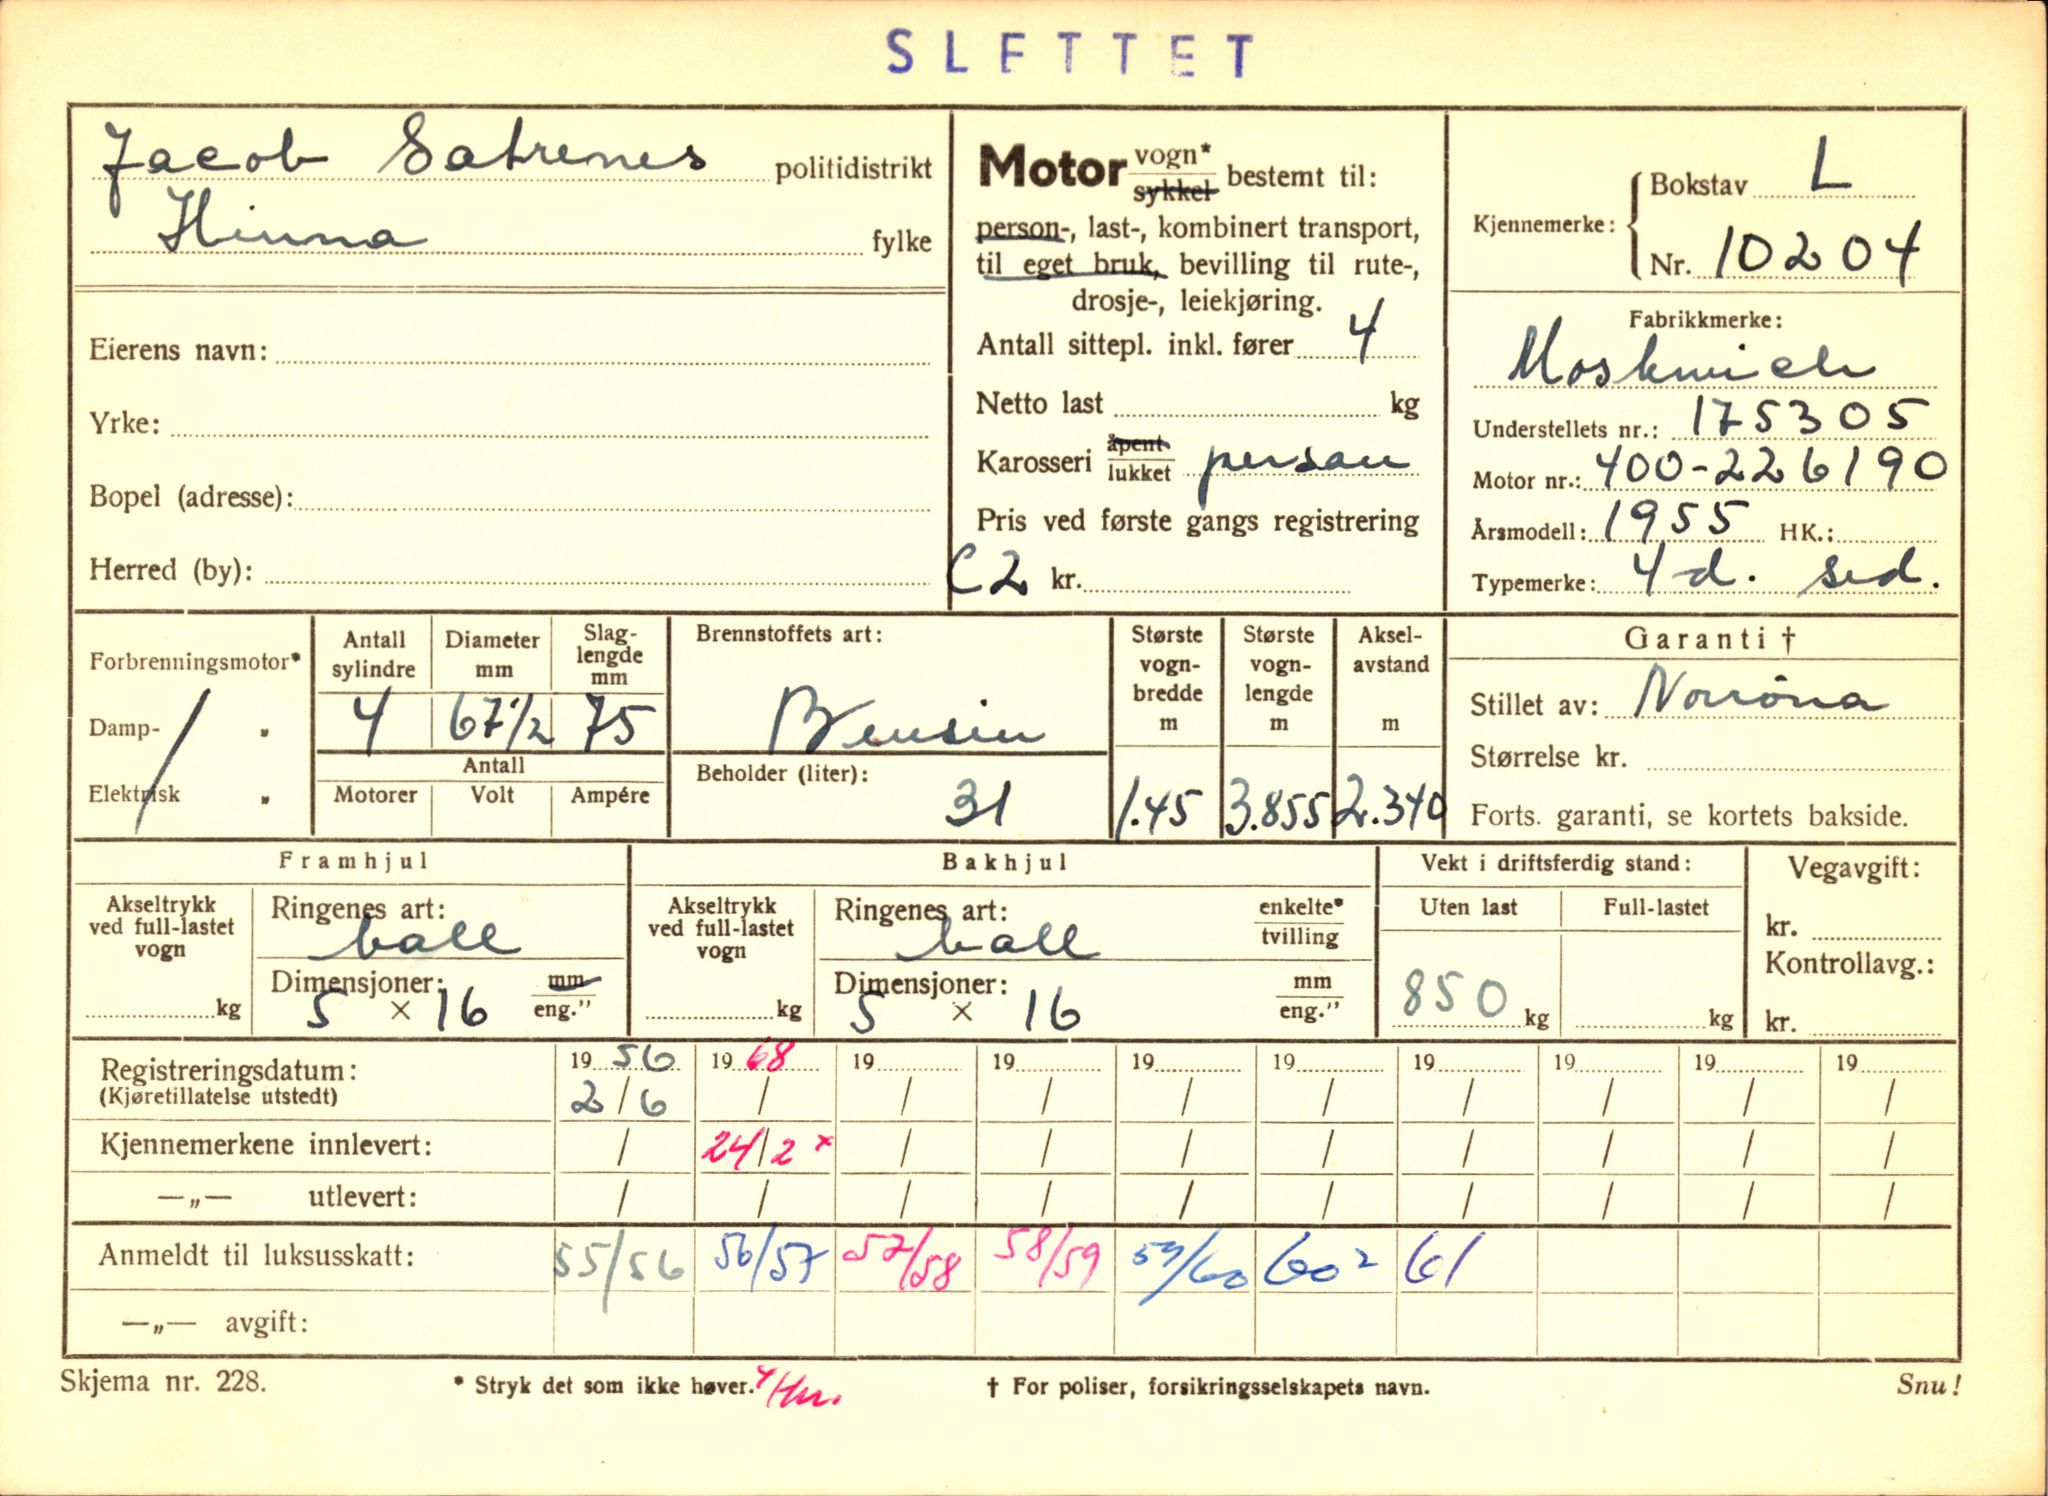 SLETTET
Jacob Satrenes politidistrikt
Hinna fylke
Eierens navn:
Yrke:
Bopel (adresse):
Herred (by):
Motor vogn* sykkel bestemt til:
person-, last-, kombinert transport,
til eget bruk, bevilling til rute-,
drosje-, leiekjøring.
Antall sittepl. inkl. fører 4
Netto last kg
Karosseri åpent lukket person
Pris ved første gangs registrering
C2 kr.
Kjennemerke: Bokstav L
Nr. 10204
Fabrikkmerke:
Moskwich
Understellets nr.: 175305
Motor nr.: 400-226190
Årsmodell: 1955 HK.:
Typemerke: 4 d. sed.
Forbrenningsmotor*
Damp- „
Elektrisk „
Antall sylindre
Diameter mm
Slag-lengde mm
4 67 1/2 75
Antall
Motorer Volt Ampére
Brennstoffets art:
Bensin
Beholder (liter):
31
Største vogn-bredde m
1.45
Største vogn-lengde m
3.855
Aksel-avstand m
2.340
Garanti †
Stillet av: Norröna
Størrelse kr.
Forts. garanti, se kortets bakside.
Framhjul
Akseltrykk ved full-lastet vogn
kg
Ringenes art:
ball
Dimensjoner: mm eng."
5 × 16
Bakhjul
Akseltrykk ved full-lastet vogn
kg
Ringenes art: enkelte* tvilling
ball
Dimensjoner: mm eng."
5 × 16
Vekt i driftsferdig stand:
Uten last Full-lastet
850 kg kg
Vegavgift:
kr.
Kontrollavg.:
kr.
Registreringsdatum: 19 56 19 68 19 19 19 19 19 19 19 19
(Kjøretillatelse utstedt) 2/6 / / / / / / / / /
Kjennemerkene innlevert: / 24/2 × / / / / / / / /
—„— utlevert: / / / / / / / / / /
Anmeldt til luksusskatt: 55/56 56/57 57/58 58/59 59/60 60² 61
—„— avgift:
Skjema nr. 228. * Stryk det som ikke høver. † For poliser, forsikringsselskapets navn. Snu!